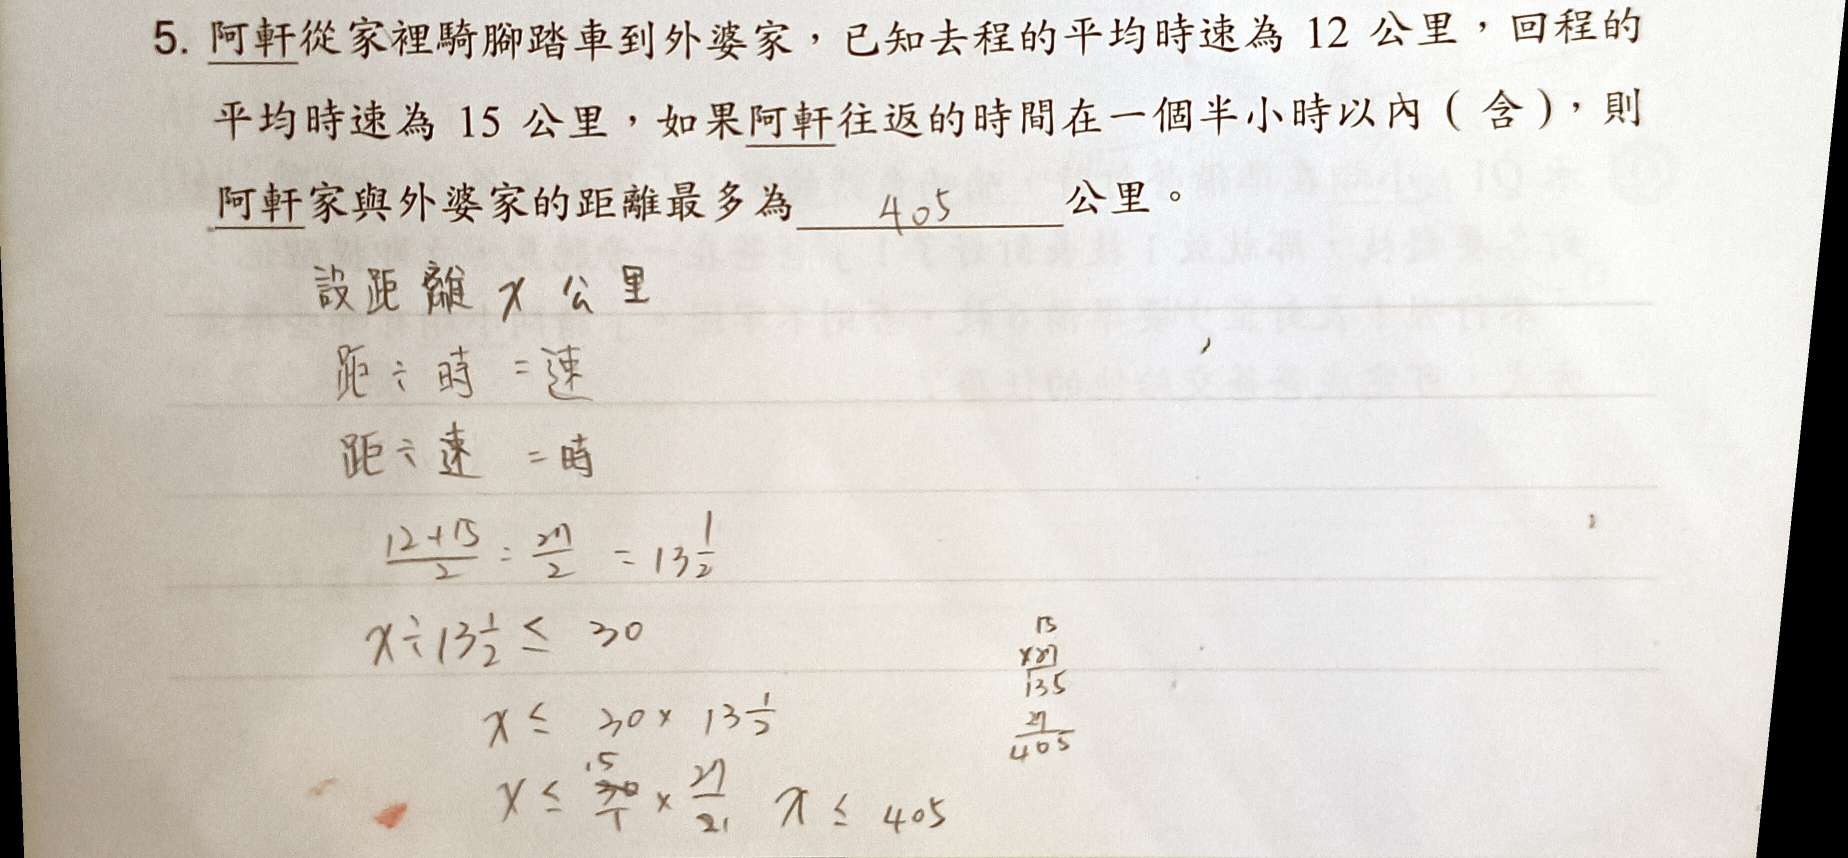 5. 阿軒從家裡騎腳踏車到外婆家，已知去程的平均時速為 12 公里，回程的
平均時速為 15 公里，如果阿軒往返的時間在一個半小時以內（含），則
阿軒家與外婆家的距離最多為 405 公里。
設距離 x 公里
距÷時=速
距÷速=時
12+15/2 = 27/2 = 13 1/2
x÷13 1/2 ≤ 30
x ≤ 30×13 1/2
x ≤ 15 30/1 × 27/21 x ≤ 405
15
×27
135
27
405